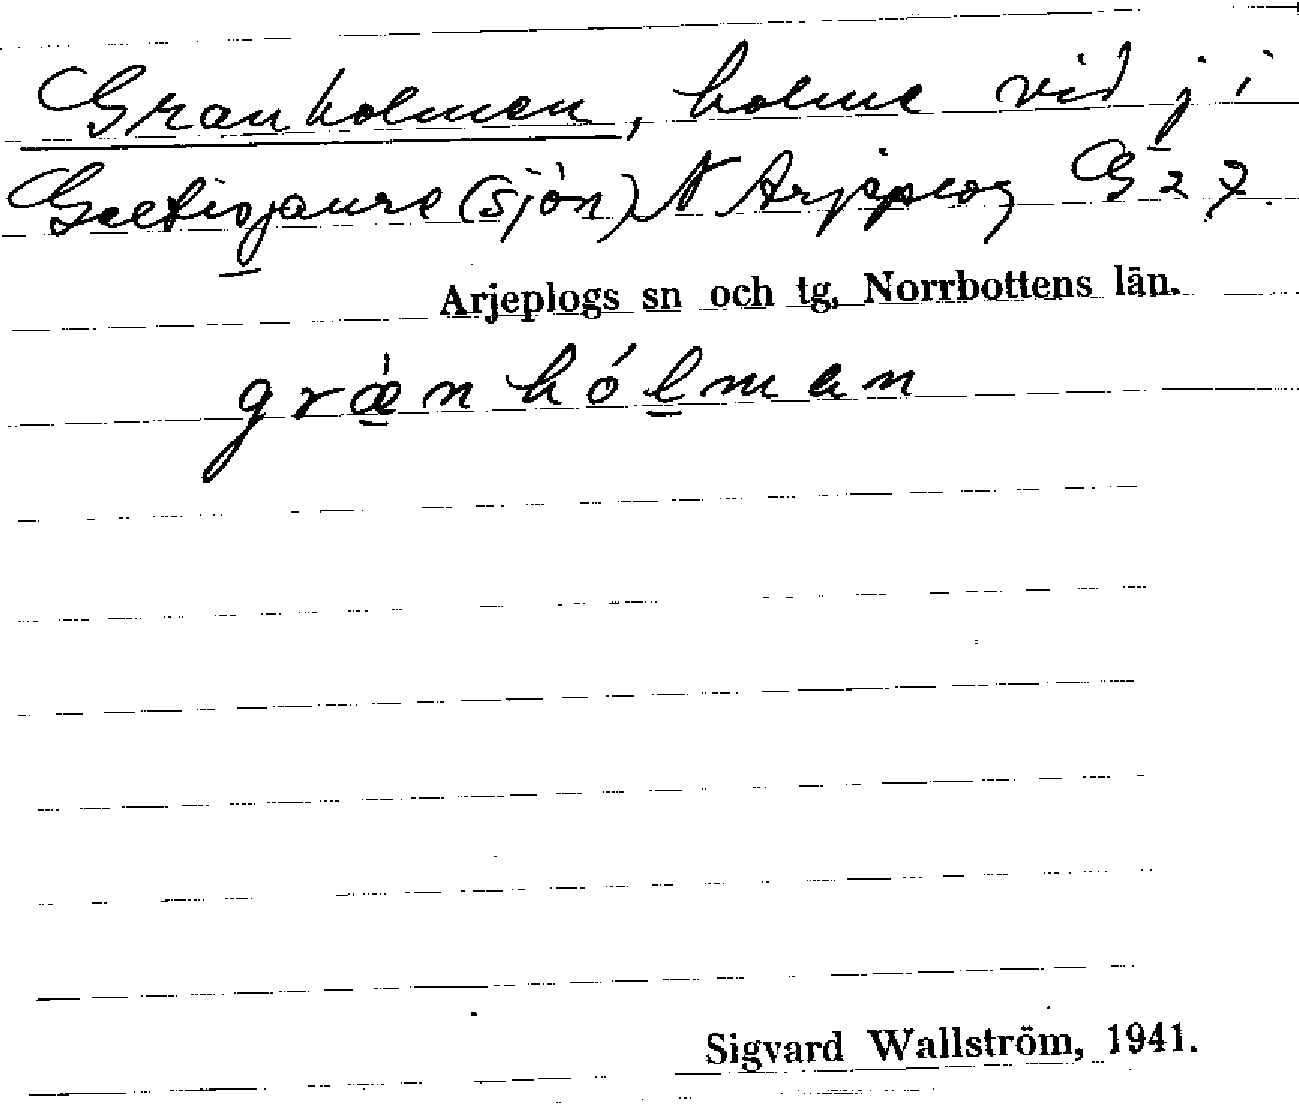 Granholmen, holme vid j i
Galtisjaure (sjön) N Arjeplog G 27
Arjeplogs sn och tg, Norrbottens län.
græ̀nhólman
Sigvard Wallström, 1941.